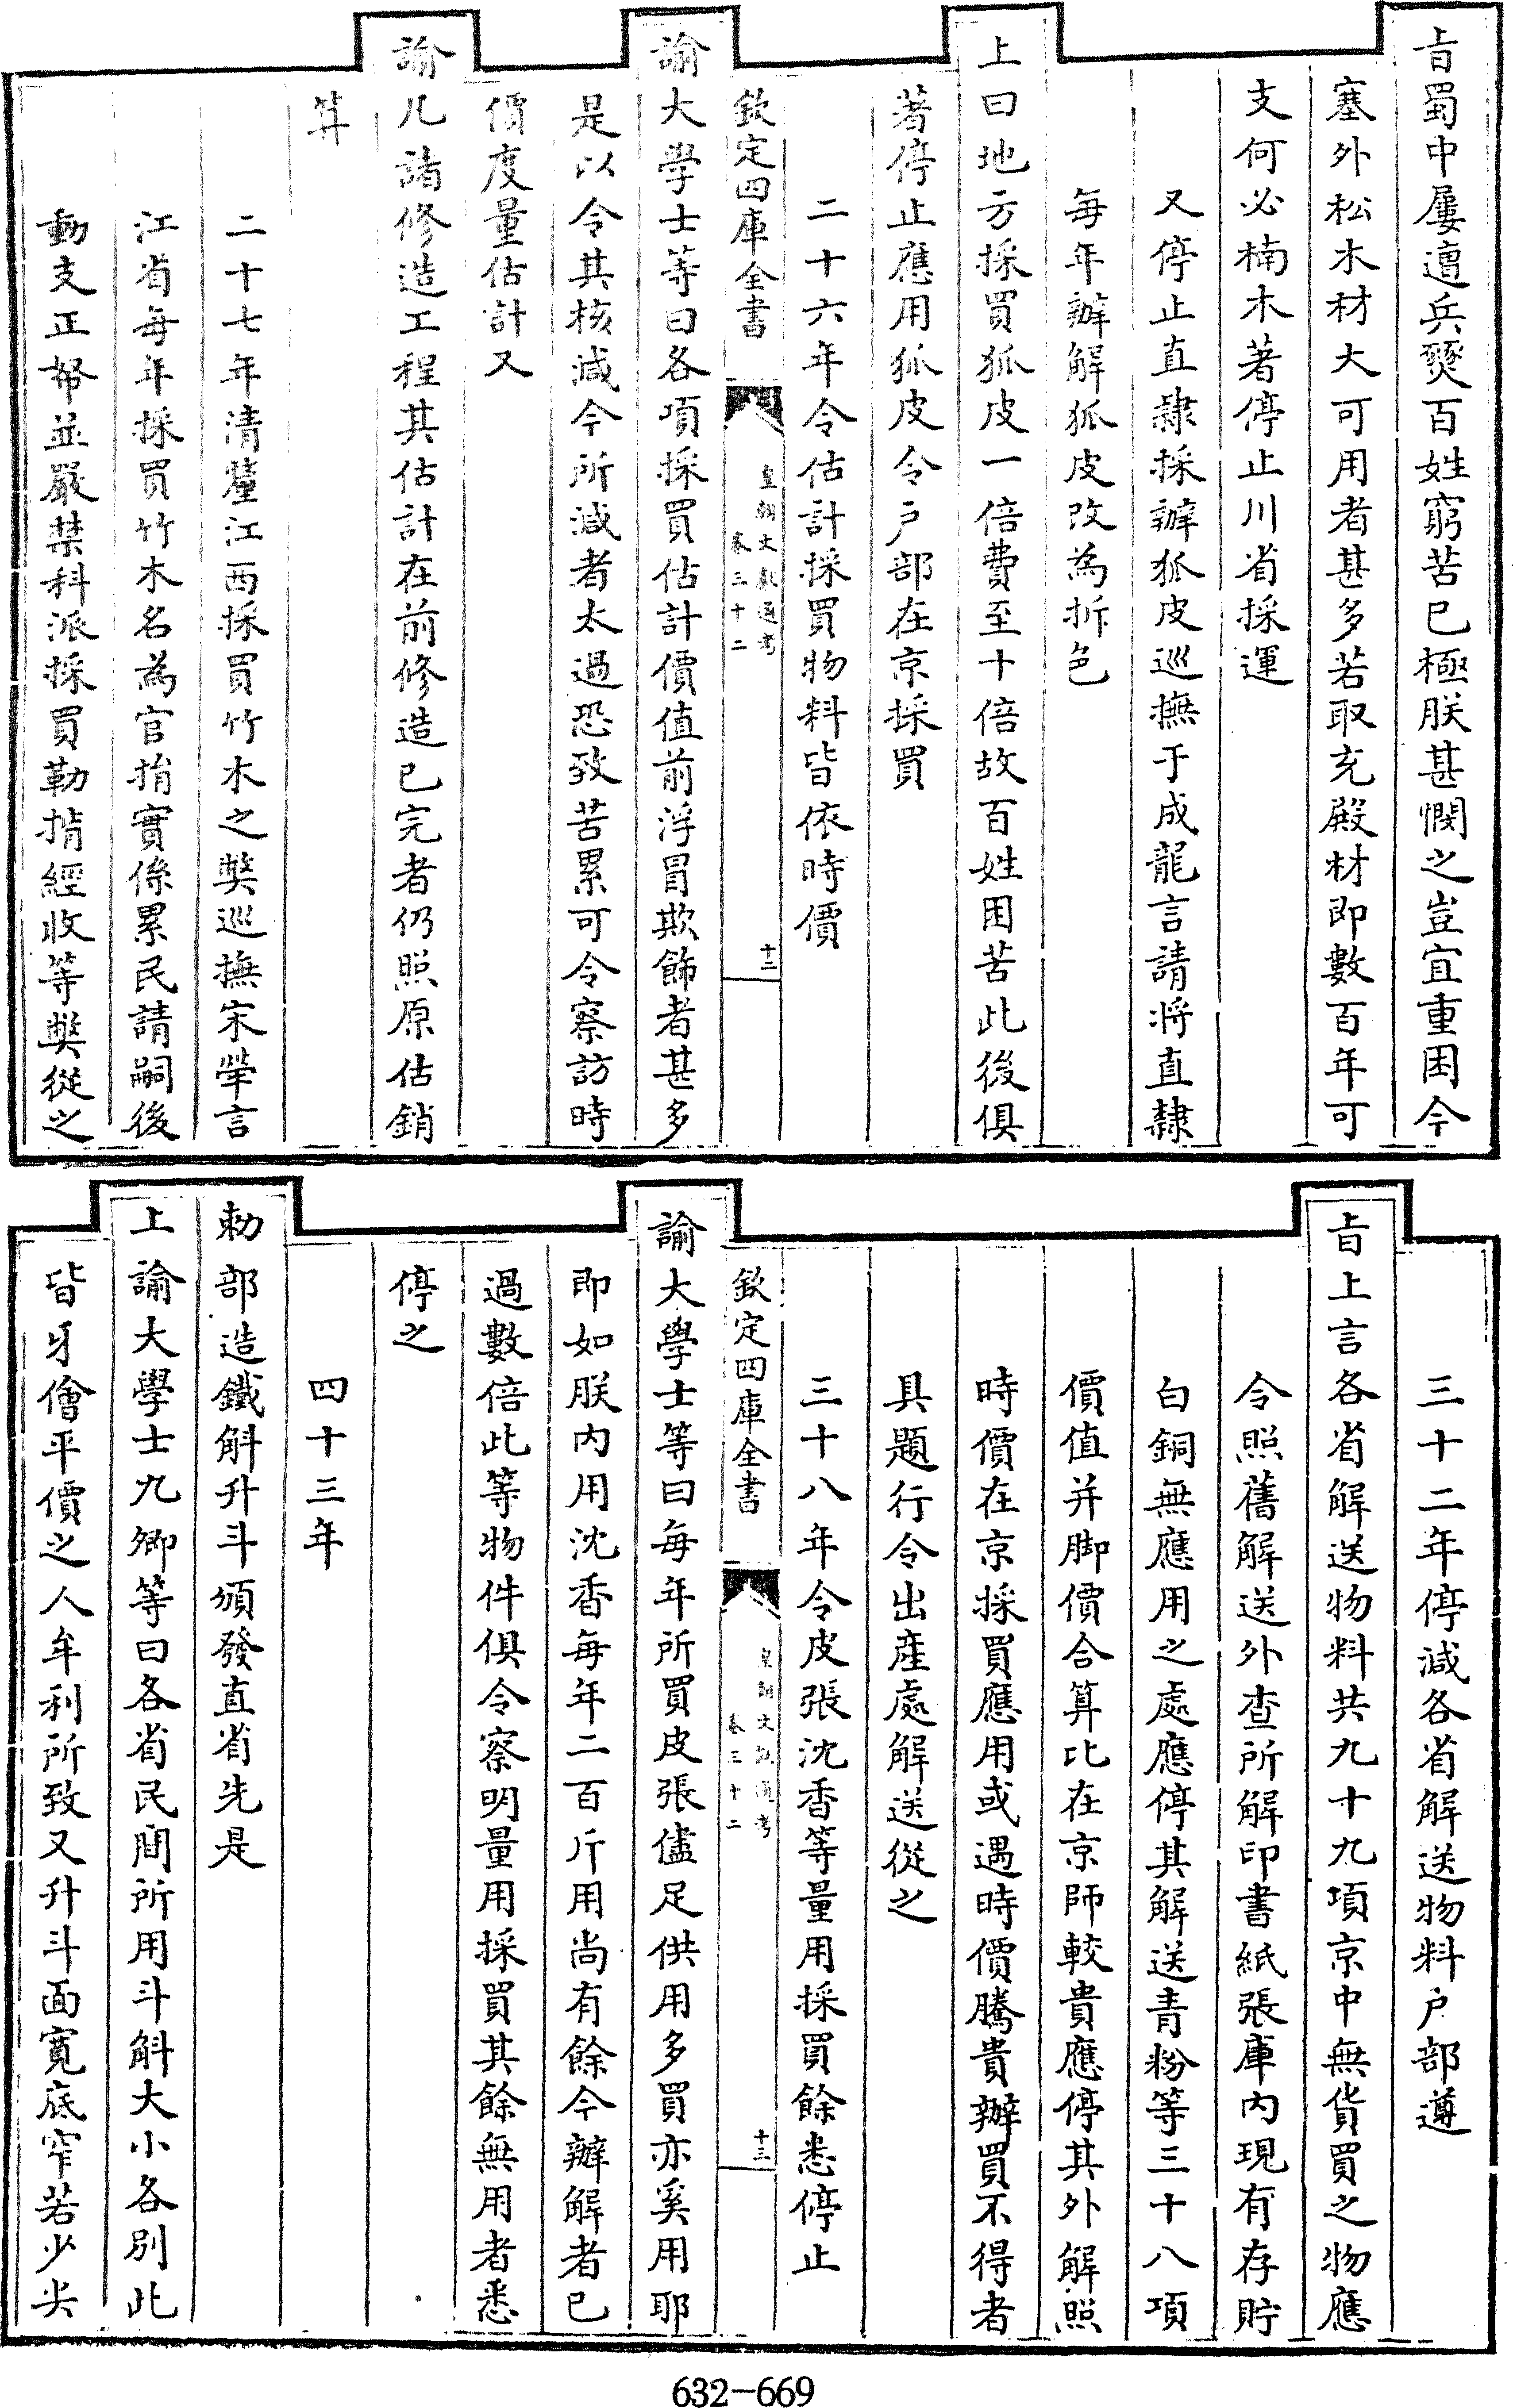 旨蜀中屢遭兵燹百姓窮苦已極朕甚憫之豈宜重困今
塞外松木材大可用者甚多若取充殿材即數百年可
支何必楠木著停止川省採運
又停止直隸採辦狐皮巡撫于成龍言請將直隸
每年辦解狐皮改為折色
上曰地方採買狐皮一倍費至十倍故百姓困苦此後俱
著停止應用狐皮令戶部在京採買
二十六年令估計採買物料皆依時價
欽定四庫全書
皇朝文獻通考
卷三十二
十二
諭大學士等曰各項採買估計價值前浮冒欺飾者甚多
是以令其核減今所減者太過恐致苦累可令察訪時
價度量估計又
諭凡諸修造工程其估計在前修造已完者仍照原估銷
算
二十七年清釐江西採買竹木之獘巡撫宋犖言
江省每年採買竹木名為官捐實係累民請嗣後
動支正帑並嚴禁科派採買勒掯經收等獘從之
三十二年停減各省解送物料戶部遵
旨上言各省解送物料共九十九項京中無貨買之物應
令照舊解送外查所解印書紙張庫內現有存貯
白銅無應用之處應停其解送青粉等三十八項
價值并脚價合算比在京師較貴應停其外解照
時價在京採買應用或遇時價騰貴辦買不得者
具題行令出產處解送從之
三十八年令皮張沈香等量用採買餘悉停止
欽定四庫全書
皇朝文獻通考
卷三十二
十三
諭大學士等曰每年所買皮張儘足供用多買亦奚用耶
即如朕內用沈香每年二百斤用尚有餘今辦解者已
過數倍此等物件俱令察明量用採買其餘無用者悉
停之
四十三年
勅部造鐵斛升斗頒發直省先是
上諭大學士九卿等曰各省民間所用斗斛大小各別此
皆牙儈平價之人牟利所致又升斗面寬底窄若少尖
632-669